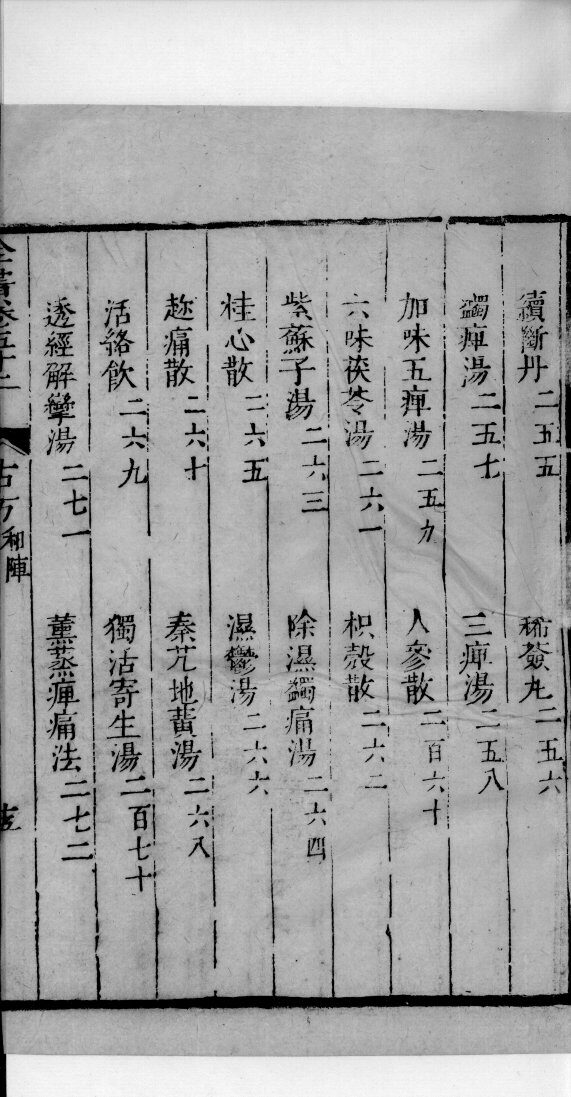 續斷丹二五五　豨薟丸二五六
蠲痺湯二五七　三痺湯二五八
加味五痺湯二五九　人參散二百六十
六味茯苓湯二六一　枳殼散二六二
紫蘇子湯二六三　除濕蠲痛湯二六四
桂心散二六五　濕鬱湯二六六
趂痛散二六十　秦艽地黃湯二六八
活絡飲二六九　獨活寄生湯二百七十
透經解攣湯二七一　薰蒸痺痛法二七二
全書卷五十二　古方和陣